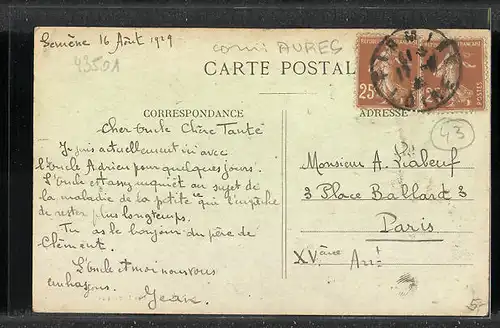 Semène 16 Août 1929
4350A
comi AURES
CARTE POSTALE
25
POSTES
CORRESPONDANCE
ADRESSE
43
Cher Oncle Chère Tante
Je suis actuellement ici avec
l'Oncle Adrien pour quelques jours.
L'Oncle est assez inquiet au sujet de
la maladie de la petite ce qui l'empêche
de rester plus longtemps.
Tu as le bonjour du père de
Clément.
L'Oncle et moi nous vous
embrassons.
Jean
Monsieur A. Liabeuf
3 Place Ballard 3
Paris
XVème Arrt
5-